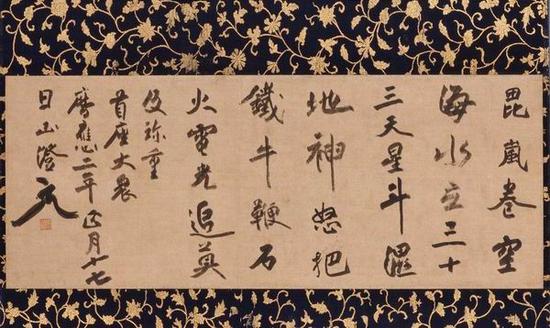 毘嵐卷空
海水立三十
三天星斗濕
地神怒把
鐵牛鞭石
火電光追莫
及珎重
首座大衆
暦應二年正月十七
日正澄